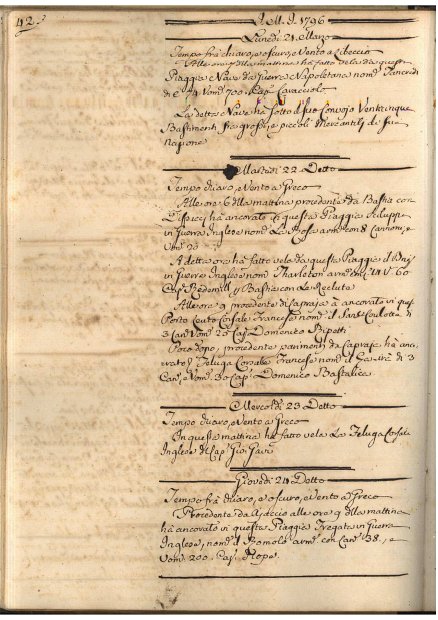 42.
A dì d. 1796
Lunedì 21 Marzo
Tempo frà chiaro, e oscuro, e Vento a Libeccio
Alle ore della mattina hà fatto vela da questa
Piaggia Nave di Guerra Napoletana nom.
di C. 74 Uom. 700. Cap. Caracciolo
La detta Nave hà sotto il suo Convojo Venticinque
Bastimenti frà grossi, e piccoli Mercantili di sua
Nazione
Martedì 22 Detto
Tempo chiaro, e Vento a Greco
Alle ore 6 della mattina procedente da Bastia con
Dispacci hà ancorato in questa Piaggia Sciluppa
in Guerra Inglese nom. La Rosa arm. con 8 Cannoni, e
Uom. 25
A detta ora hà fatto vela da questa Piaggia il
in Guerra Inglese nom. Tharleton arm. con C. 14 U. 60
Cap. Redemill p. Bastia con le Reclute
Alle ore 9 procedente di Capraja à ancorato in questo
Porto Leuto Corsale Francese nom. il Sant Coulotte di
3 Can. Uom. 25 Cap. Domenico
Poco dopo, procedente parimenti da Capraja hà anc-
orato Feluga Corsale Francese nom. il di 3
Can. e Uom. 30 Cap. Domenico Bastalica
Mercoldì 23 Detto
Tempo chiaro, e Vento a Greco
In questa mattina hà fatto vela La Feluga Corsale
Inglese di Cap. Gio
Giovedì 24 Detto
Tempo frà chiaro, e oscuro, e Vento a Greco
Procedente da Ajaccio alle ore 9 della mattina
hà ancorato in questa Piaggia Fregata in Guerra
Inglese, nom. il Romolo arm. con Can. 38., e
Uom. 200. Cap. Hope